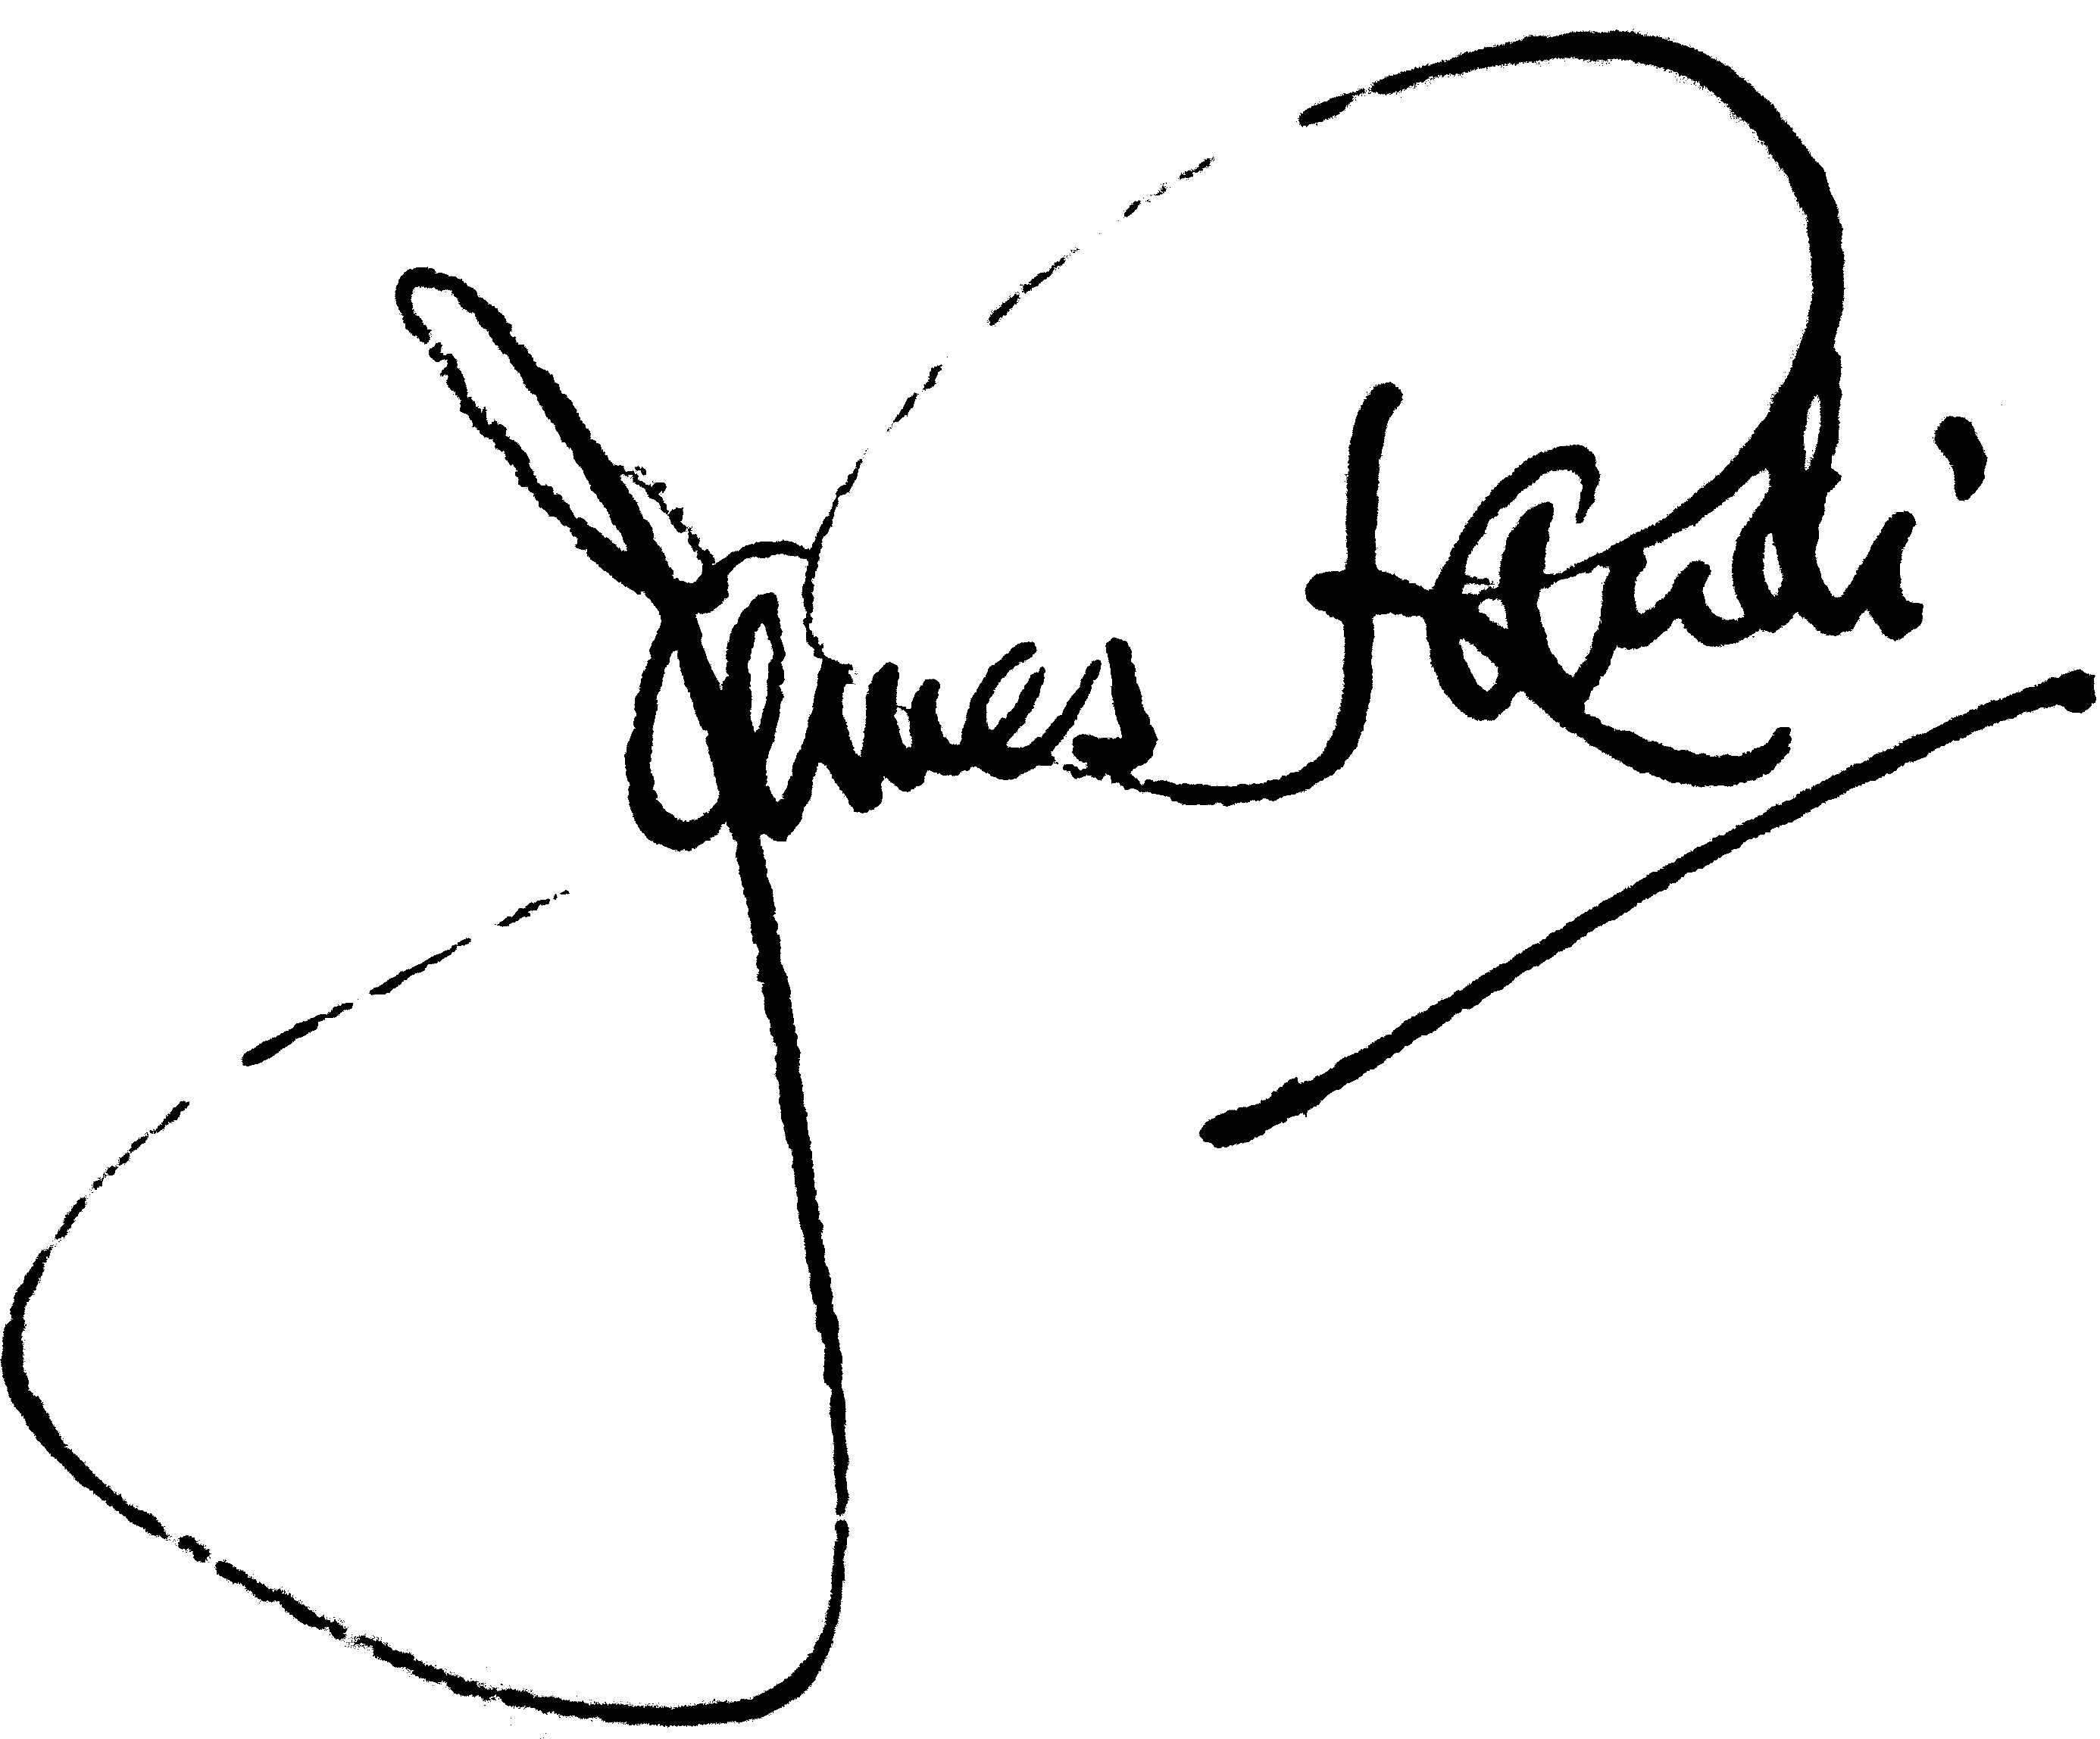 James Randi